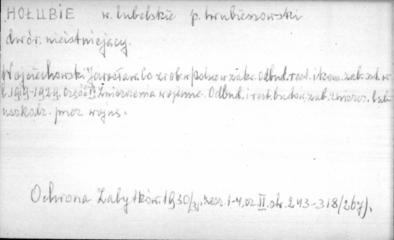 HOŁUBIE w. lubelskie p. hrubieszowski
dwór. nieistniejący.
Wojciechowski Jarosław. Co zrob. w Polsce w zakr. Odbud. rest. i kons. zab. szt. w
l. 1919-1929. Część II. Zniszczenia wojenne. Odbud. i rest. budow. zab. zniszcz. lub
uszkodz. przez wojnę.
Ochrona Zabytków. 1930/31. zesz. 1-4. cz. II. str. 243-318 /267/.